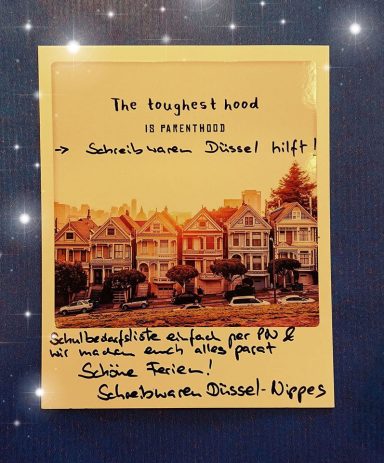 The toughest hood
IS PARENTHOOD
→ Schreibwaren Düssel hilft!
Schulbedarfsliste einfach per PN &
wir machen euch alles parat
Schöne Ferien!
Schreibwaren Düssel-Nippes